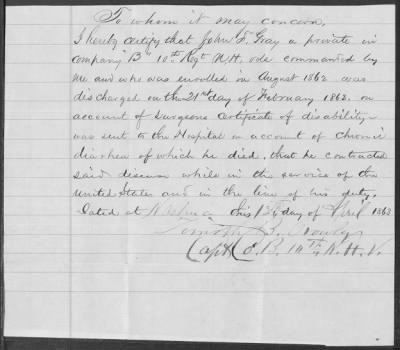 To whom it may concern,
I hereby certify that John F. Gray a private in
company "B" 10th Regt N.H. vols commanded by
me and who was enrolled in August 1862 was
discharged on the 21st day of February 1863. on
account of Surgeons certificate of disability
was sent to the Hospital on account of chronic
diarhea of which he died, that he contracted
said disease while in the service of the
United States and in the line of his duty.
Dated at this day of April 1863
Timothy B.
Capt Co. B. 10th N. H. V.